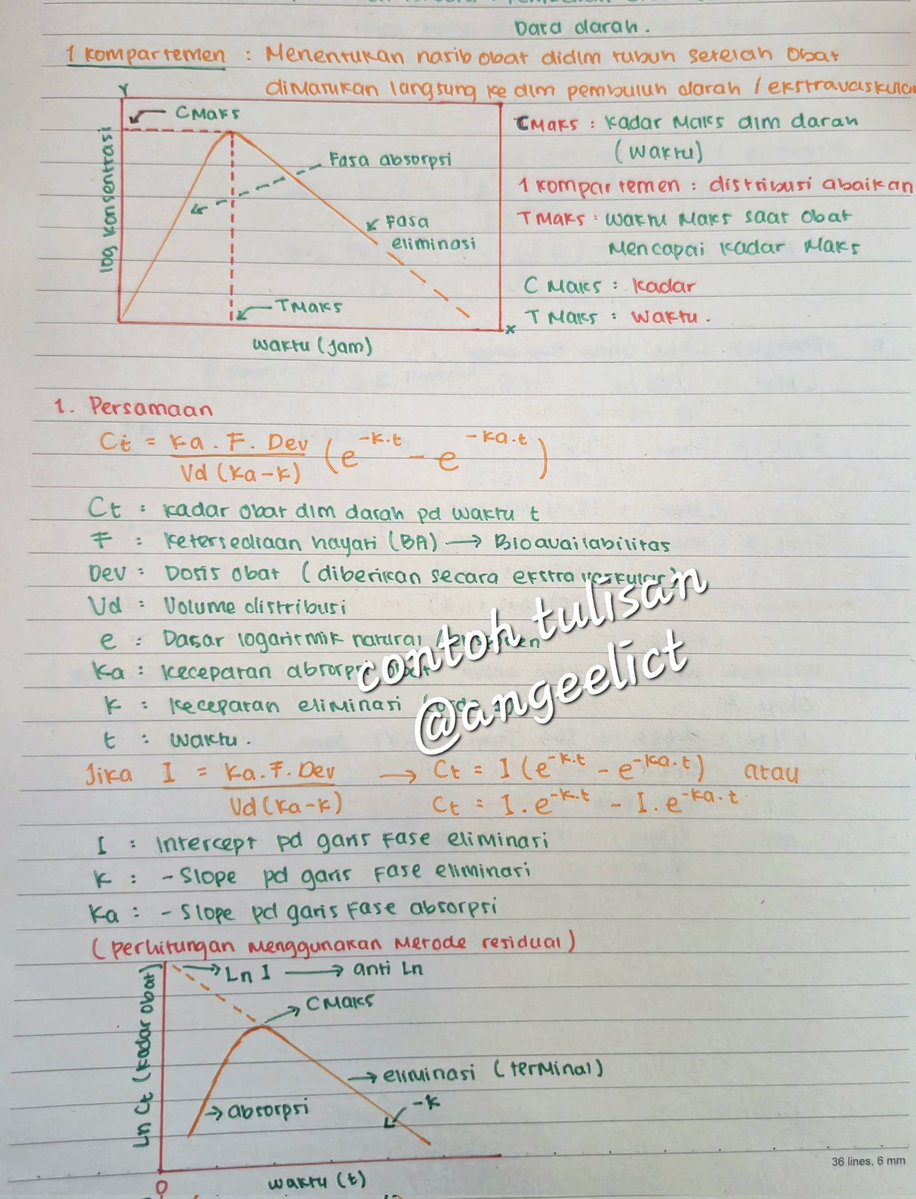 Data darah.
1 kompartemen : Menentukan nasib obat didlm tubuh setelah obat
dimasukan langsung ke dlm pembuluh darah / ekstravaskular
Y
CMaks
log konsentrasi
Fasa absorpsi
Fasa
eliminasi
TMaks
x
waktu (jam)
CMaks : Kadar Maks dlm darah
(waktu)
1 kompartemen : distribusi abaikan
TMaks : waktu Maks saat obat
Mencapai Kadar Maks
C Maks : Kadar
T Maks : waktu.
1. Persamaan
Ct = Ka . F. Dev / Vd (Ka-k) (e^-k.t - e^-ka.t)
Ct : Kadar obat dlm darah pd waktu t
F : Ketersediaan hayati (BA) → Bioavailabilitas
Dev : Dosis obat (diberikan secara ekstravaskular)
Vd : Volume distribusi
e : Dasar logaritmik natural
Ka : Kecepatan absorpsi
k : Kecepatan eliminasi
t : waktu.
contoh tulisan
@angeelict
Jika I = Ka.F.Dev / Vd(Ka-k) → Ct = I (e^-k.t - e^-ka.t) atau
Ct = I. e^-k.t - I. e^-ka.t
I : Intercept pd garis Fase eliminasi
k : -Slope pd garis Fase eliminasi
Ka : -Slope pd garis Fase absorpsi
(perhitungan Menggunakan Metode residual)
Ln Ct (Kadar obat)
Ln I → anti Ln
CMaks
→ eliminasi (terminal)
-k
→ absorpsi
0
waktu (t)
36 lines, 6 mm